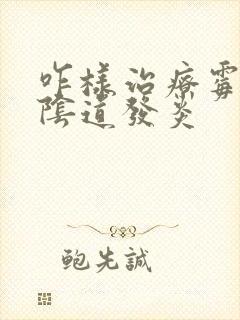 咋樣治療霉
陰道發炎
鲍先誠